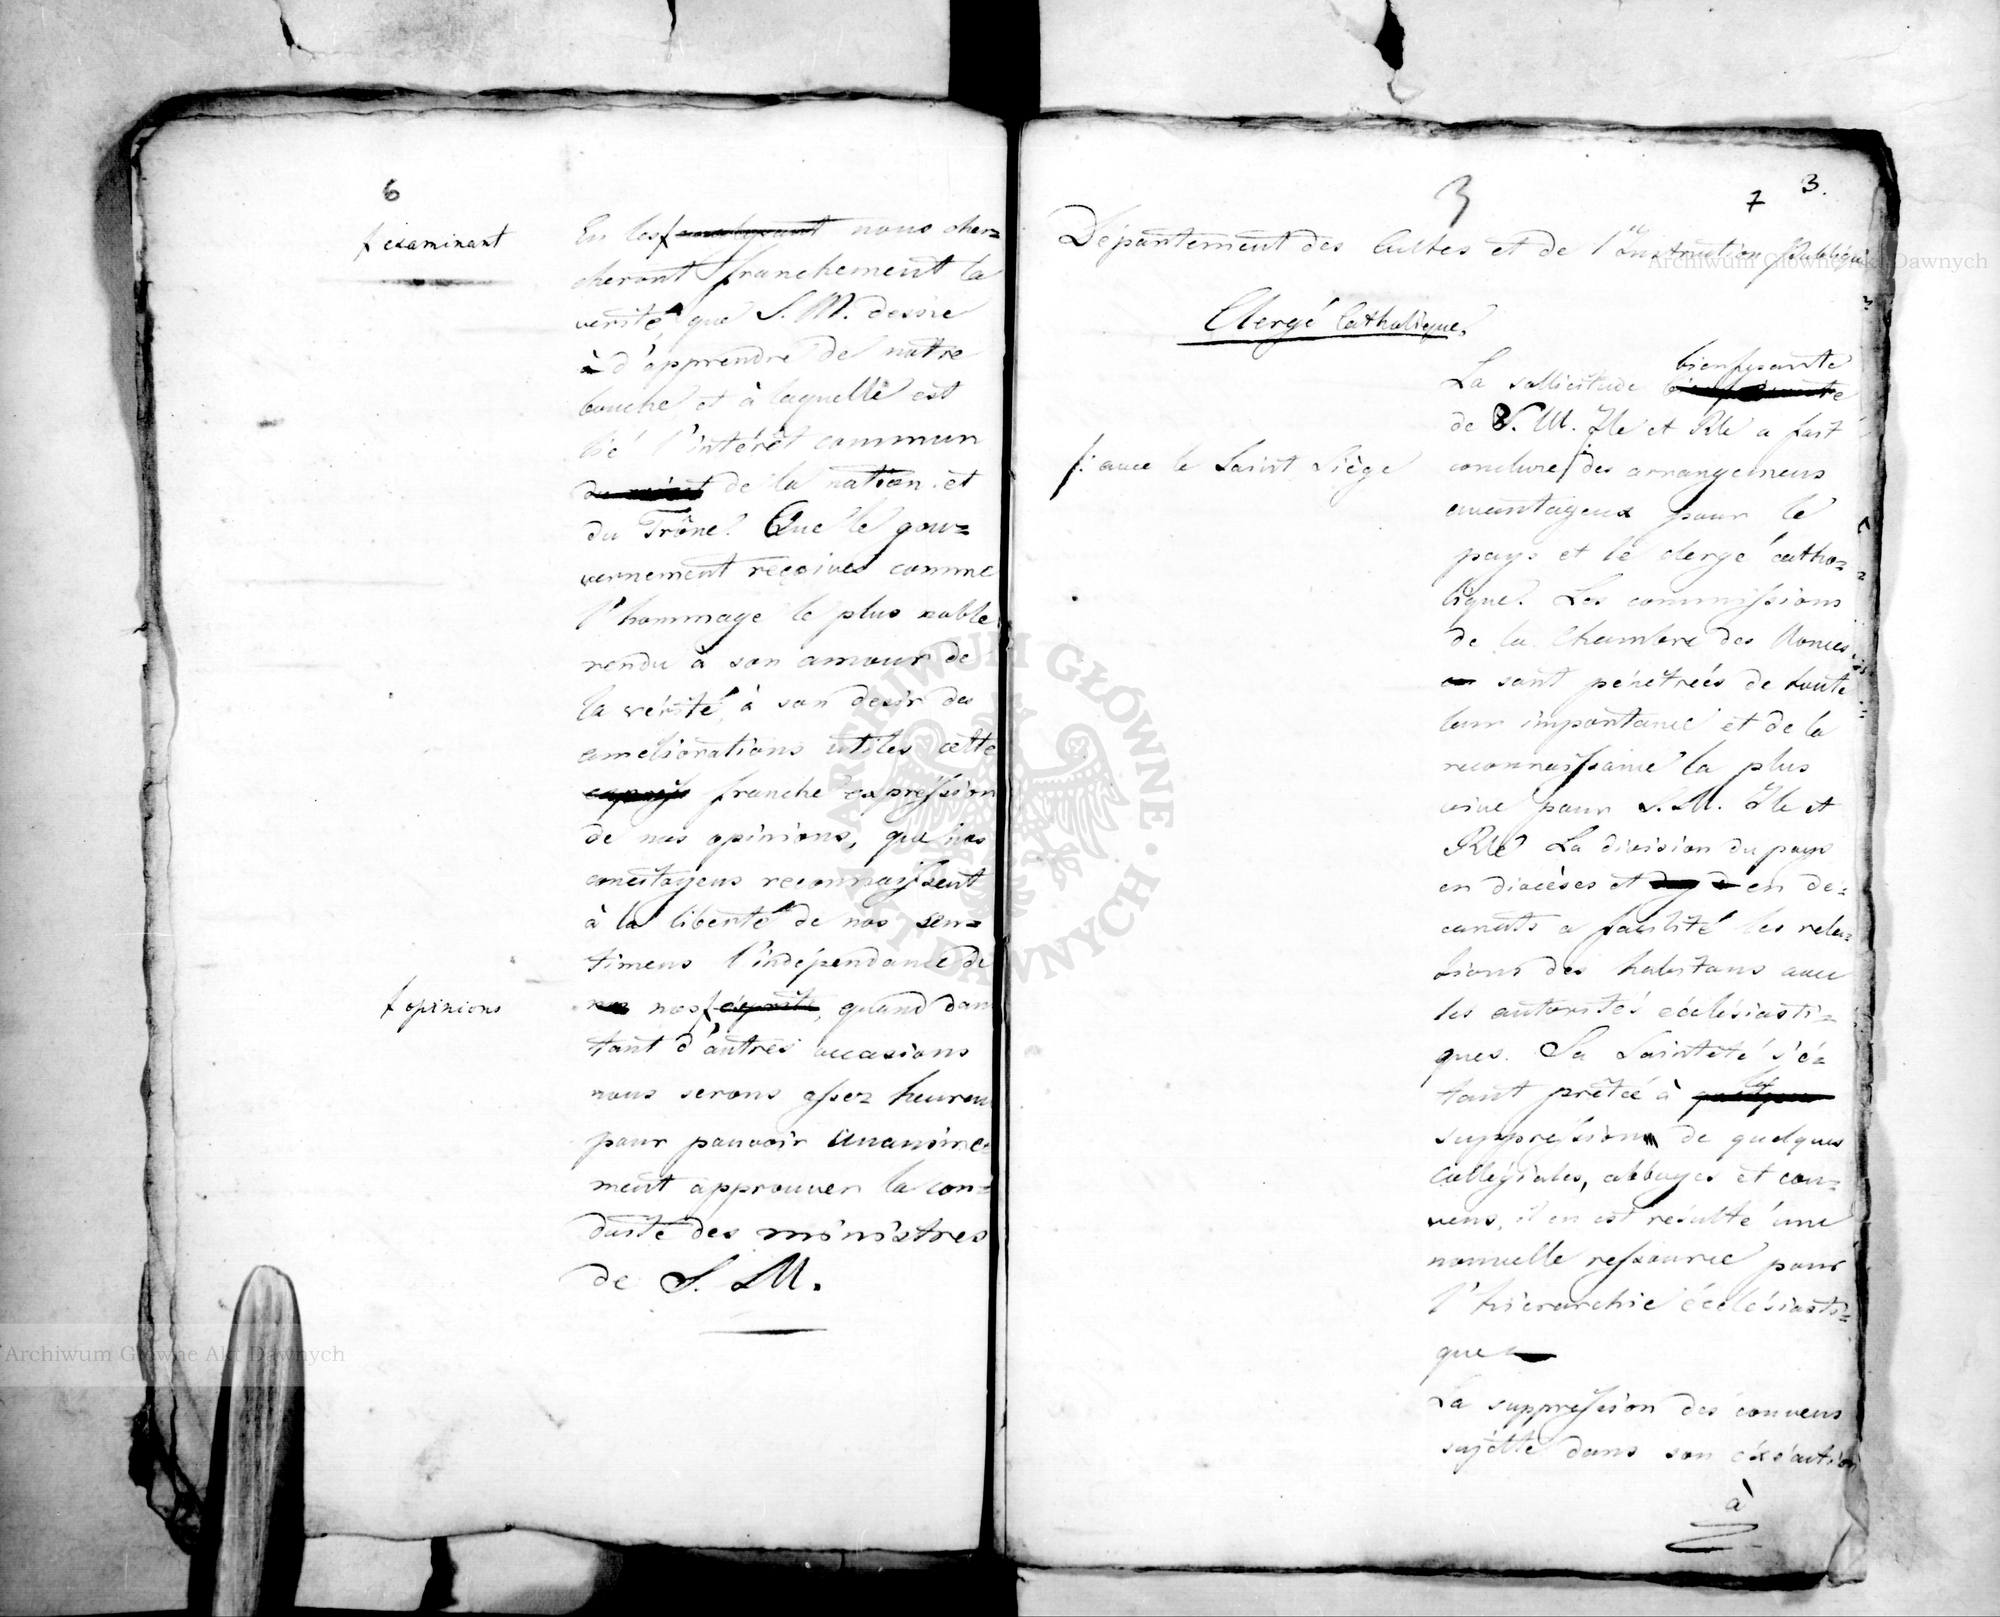 6
f examinant
En les f analysant nous cher=
cheront franchement la
verité que S. M. desire
à d'apprendre de notre
bouche et à laquelle est
lié l'intérêt commun
de la nation et
du Trône. Que le gou=
vernement reçoive comme
l'hommage le plus noble
rendu à son amour de
la vérité, à son desir des
ameliorations utiles cette
franche expression
de nos opinions, que nos
concitoyens reconnaissent
à la liberté de nos sen=
timens l'indépendance de
f opinions
nos f esprits, quand dans
tant d'autres occasions
nous serons assez heureux
pour pouvoir unanime=
ment approuver la con=
duite des ministres
de S. M.
3
7
3.
Département des Cultes et de l'Instruction Publique
Clergé Catholique.
bienfaisante
La sollicitude bienfaisante
de S. M. Ile et Rle a fait
f: avec le Saint Siège
conclure f des arrangemens
avantageux pour le
pays et le clergé catho=
lique. Les commissions
de la Chambre des Nonces
sont pénétrées de toute
leur importance et de la
reconnaissance la plus
vive pour S. M. Ile et
Rle La division du pays
en diocèses et en dé=
canats a facilité les rela=
tions des habitans avec
les autorités écclésiasti=
ques. Sa Sainteté s'é=
tant prêtée à la
suppression de quelques
Collégiales, abbayes et cou=
vens, il en est résulté une
nouvelle ressource pour
l'hierarchie écclésiasti=
que
La suppression des couvens
sujette dans son éxécution
à
Archiwum Główne Akt Dawnych
Archiwum Główne Akt Dawnych
ARCHIWUM GŁÓWNE AKT DAWNYCH